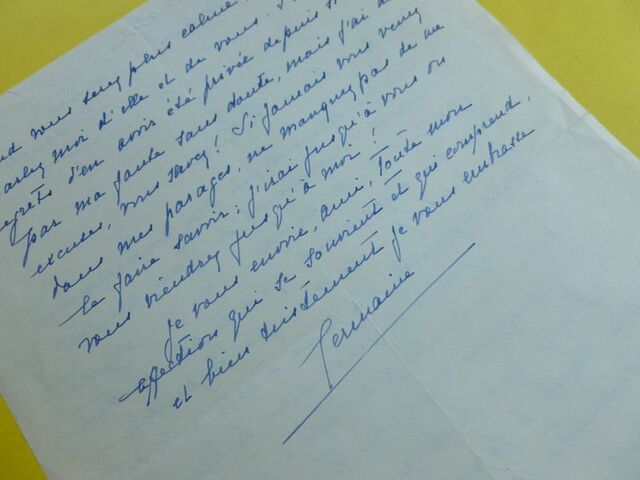 nd vous serez plus calme
arlez moi d'elle et de vous.
egrets d'en avoir été privée depuis
par ma faute sans doute, mais j'ai
excuses, vous savez! Si jamais vous venez
dans mes parages, ne manquez pas de me
le faire savoir; j'irai jusqu'à vous ou
vous viendrez jusqu'à moi!
Je vous envoie, ami, toute mon
affection qui se souvient et qui comprend,
et bien tristement je vous embrasse
Germaine